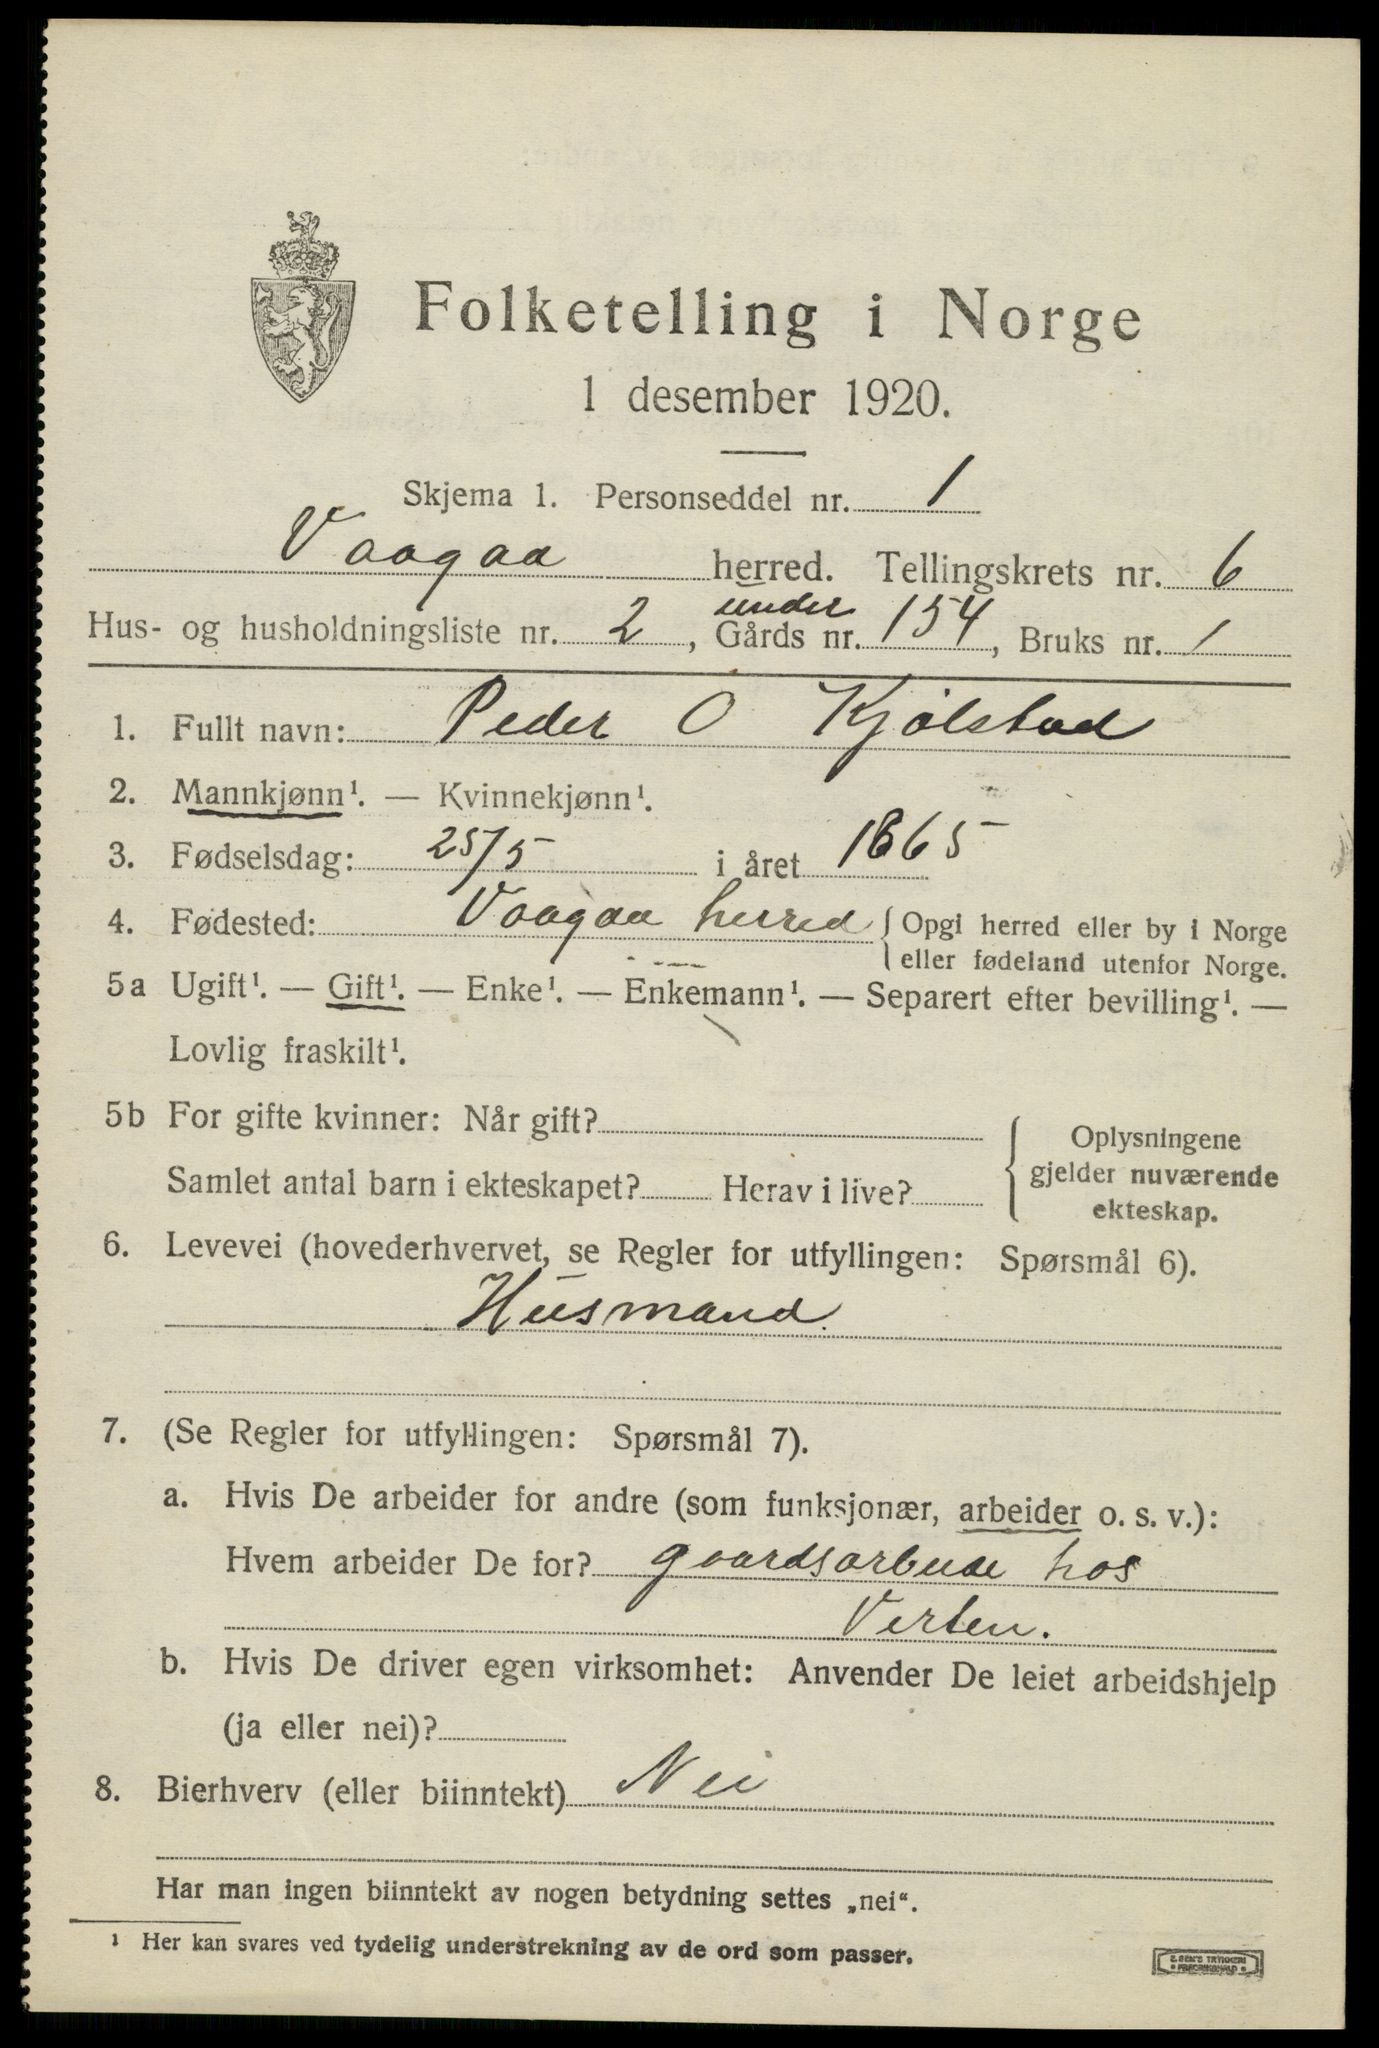 Folketelling i Norge
1 desember 1920.
Skjema 1. Personseddel nr. 1
Vaagaa herred. Tellingskrets nr. 6
under
Hus- og husholdningsliste nr. 2, Gårds nr. 154, Bruks nr. 1
1. Fullt navn: Peder O Kjølstad
2. Mannkjønn¹. — Kvinnekjønn¹.
3. Fødselsdag: 25/5 i året 1865
4. Fødested: Vaagaa herred { Opgi herred eller by i Norge
eller fødeland utenfor Norge.
5a Ugift¹. — Gift¹. — Enke¹. — Enkemann¹. — Separert efter bevilling¹. —
Lovlig fraskilt¹.
5b For gifte kvinner: Når gift?
Samlet antal barn i ekteskapet? Herav i live?
{ Oplysningene
gjelder nuværende
ekteskap.
6. Levevei (hovederhvervet, se Regler for utfyllingen: Spørsmål 6).
Husmand.
7. (Se Regler for utfyllingen: Spørsmål 7).
a. Hvis De arbeider for andre (som funksjonær, arbeider o. s. v.):
Hvem arbeider De for? gaardsarbeide hos
Verten.
b. Hvis De driver egen virksomhet: Anvender De leiet arbeidshjelp
(ja eller nei)?
8. Bierhverv (eller biinntekt) Nei
Har man ingen biinntekt av nogen betydning settes „nei“.
¹ Her kan svares ved tydelig understrekning av de ord som passer.